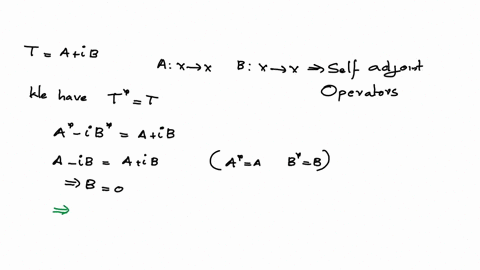 T = A+iB
A: x→x B: x→x ⇒ Self adjoint Operators
We have T* = T
A* - iB* = A+iB
A - iB = A+iB (A*=A B*=B)
⇒ B = 0
⇒